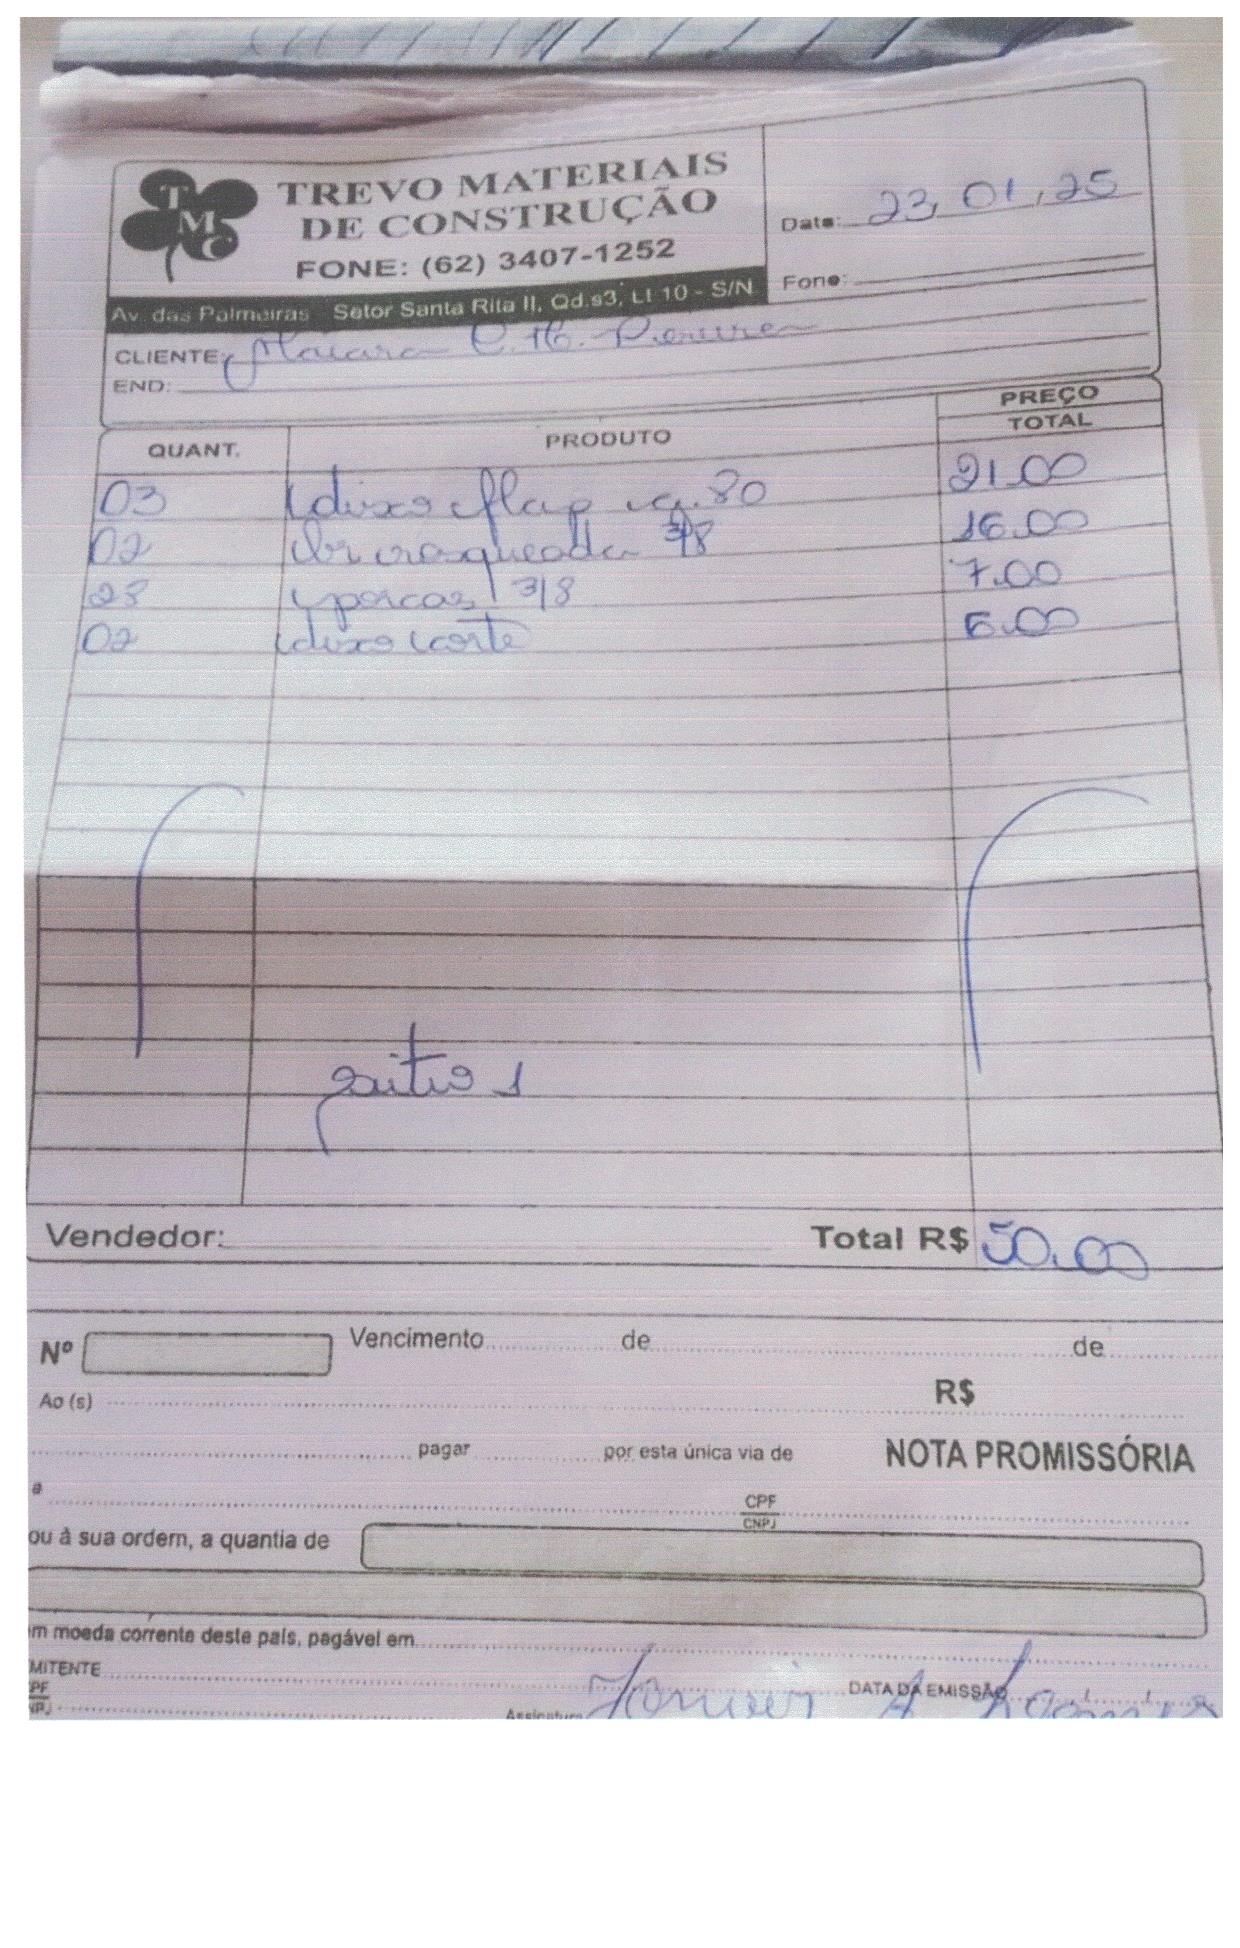 TMC
TREVO MATERIAIS
DE CONSTRUÇÃO
FONE: (62) 3407-1252
Av. das Palmeiras Setor Santa Rita II, Qd.s3, Lt 10 - S/N
Data: 23, 01, 25
Fone:
CLIENTE:
END:
QUANT. PRODUTO PREÇO TOTAL
03 disco flap g.80 21.00
02 br rosqueada 3/8 16.00
28 porcas 3/8 7.00
02 disco corte 6.00
sitio 1
Vendedor: Total R$ 50.00
Nº Vencimento de de
Ao (s) R$
pagar por esta única via de NOTA PROMISSÓRIA
a CPF
CNPJ
ou à sua ordem, a quantia de
m moeda corrente deste país, pagável em
MITENTE
PF DATA DA EMISSÃO
NPJ Assinatura